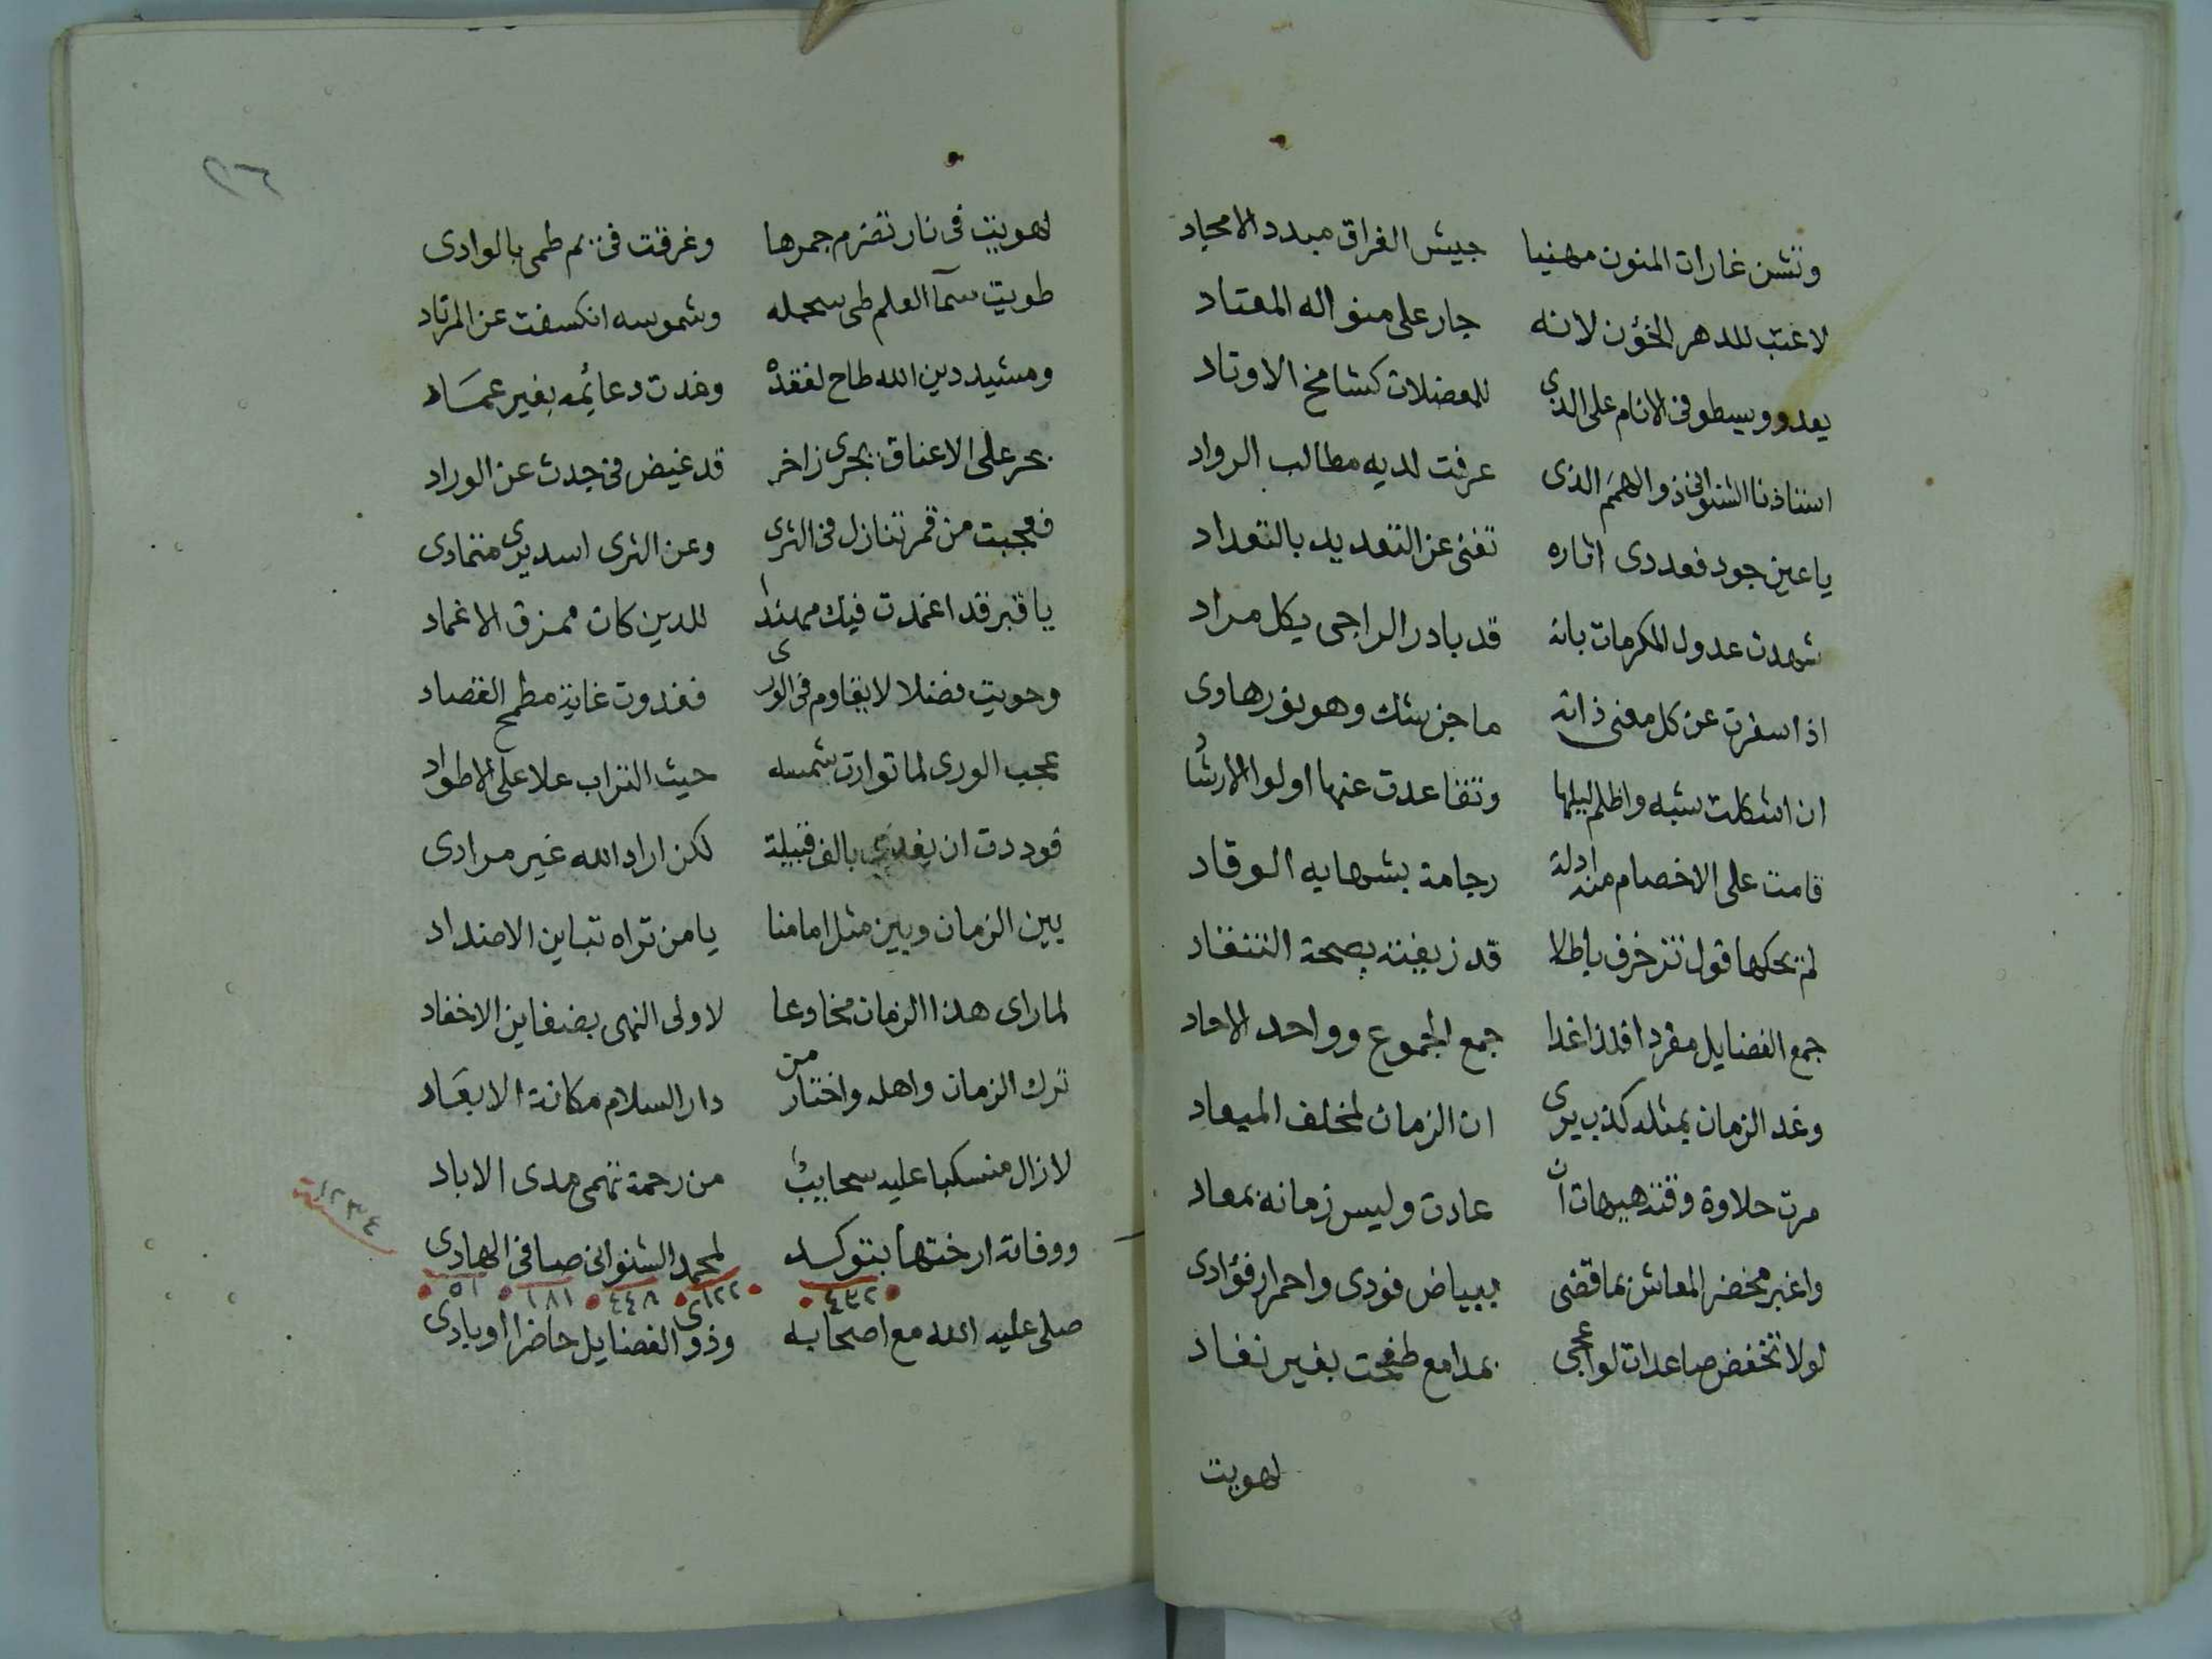 وتشن غارات المنون مهنيا جيش الفراق مبدد الامجاد
لا عتب للدهر الخؤن لانه جار على منواله المعتاد
يعدو ويسطو فى الانام على الذى للمعضلات كشامخ الاوتاد
استاذنا الشنوانى ذو الهمم الذى عرفت لديه مطالب الرواد
يا عين جود فعددى اثاره تغنى عن التعديد بالتعداد
شهدت عدول المكرمات بانه قد بادر الراجى بكل مراد
اذ اسفرت عن كل معنى ذاته ما جن شك وهو نور هادى
ان اشكلت شبه واظلم ليلها وتقاعدت عنها اولوا الارشاد
قامت على الاخصام منه ادلة رجامة بشهابه الوقاد
لم يحكها قول تزخرف باطلا قد زيفته بصحة النقاد
جمع الفضايل مفردا فلذا غدا جمع الجموع وواحد الاحاد
وعد الزمان بمثله كذب يرى ان الزمان لمخلف الميعاد
مرت حلاوة وقته هيهات ان عادت وليس زمانه بمعاد
واغبر مخضر المعاش بما قضى ببياض فودى واحمرار فؤادى
لولا تخفض صاعدات لواعجى بمدامع طفحت بغير نفاد
لهويت
٢٦
لهويت فى نار تضرم جمرها وغرقت فى يم طمى بالوادى
طويت سمآ العلم طى سجله وشموسه انكسفت عن المرتاد
ومشيد دين الله طاح لفقده وغدت دعائمه بغير عمَاد
بحر على الاعناق يجرى زاخر قد غيض فى جدث عن الوراد
فعجبت من قمر تنازل فى الثرى وعن الثرى اسد يرى متمادى
يا قبر قد اغمدت فيك مهندا للدين كان ممزق الاغماد
وحويت فضلا لا يقاوم فى الورى فغدوت غاية مطمح القصاد
عجب الورى لما توارت شمسه حيث التراب علا على الاطواد
فوددت ان يفدى بالف قبيلة لكن اراد الله غير مرادى
بين الزمان وبين مثل امامنا يا من تراه تباين الاضداد
لما راى هذا الزمان مخادعا لاولى النهى بضغاين الاحقاد
ترك الزمان واهله واختار من دار السلام مكانة الابعَاد
لا زال منسكبا عليه سحايب من رحمة تهمى مدى الاباد
ووفاته ارختها بتوكد لمحمد الشنوانى صافى الهادى
٤٣٢ ١٢٢ ٤٤٨ ١٨١ ٥١
سنة ١٢٣٤
صلى عليه الله مع اصحابه وذوى الفضايل حاضرا او بادى